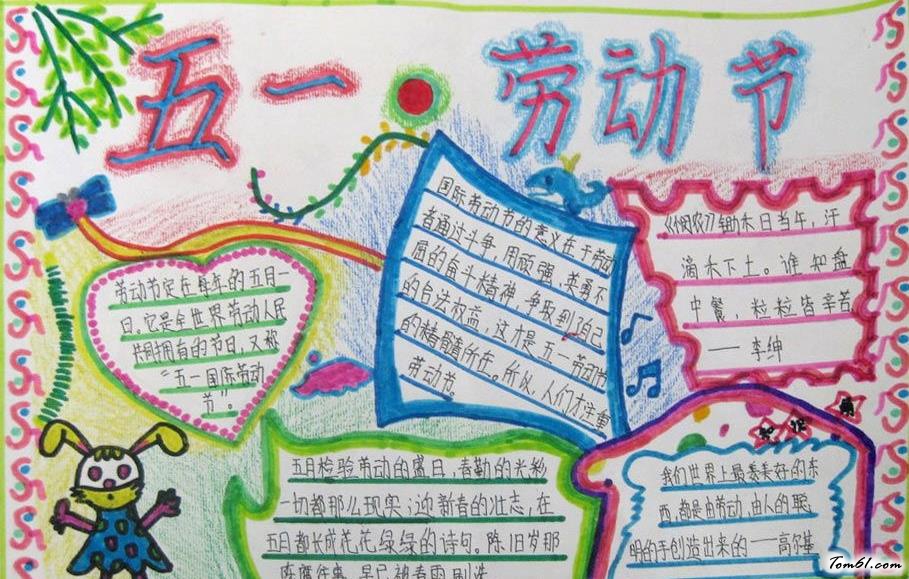 五一 劳动节
劳动节定在每年的五月一
日。它是全世界劳动人民
共同拥有的节日,又称
“五一国际劳动
节”。
国际劳动节的意义在于劳动
者通过斗争,用顽强、英勇不
屈的奋斗精神,争取到了自己
的合法权益,这才是五一劳动节
的精髓所在。所以,人们才注重
劳动节。
《悯农》锄禾日当午,汗
滴禾下土。谁知盘
中餐,粒粒皆辛苦
——李绅
五月检验劳动的盛日,春勤的米粉
一切都那么现实;迎新春的壮志,在
五月都长成花花绿绿的诗句。陈旧岁那
早已被春雨
我们世界上最美好的东
西,都是由劳动,由人的聪
明的手创造出来的——高尔基
Tom61.com